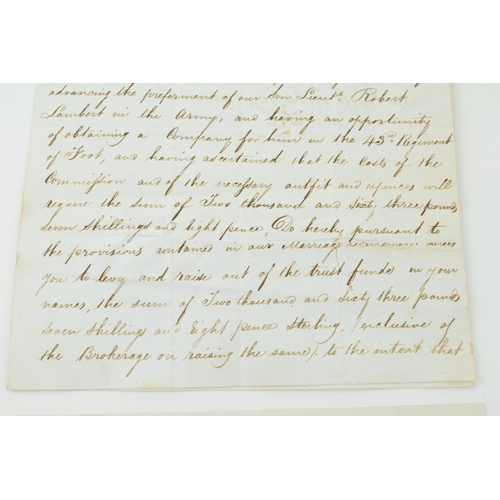 advancing the preferment of our Son Lieut. Robert
Lambert in the Army, and having an opportunity
of obtaining a Company for him in the 43rd Regiment
of Foot, and having ascertained that the Costs of the
Commission and of the necessary outfit and expences will
require the sum of Two thousand and Sixty three pounds
seven Shillings and Eight pence Do hereby pursuant to
the provisions contained in our Marriage
you to levy and raise out of the trust funds in your
names, the sum of Two thousand and Sixty three pounds
Seven Shillings and Eight pence Sterling, (exclusive of
the Brokerage on raising the same) to the intent that